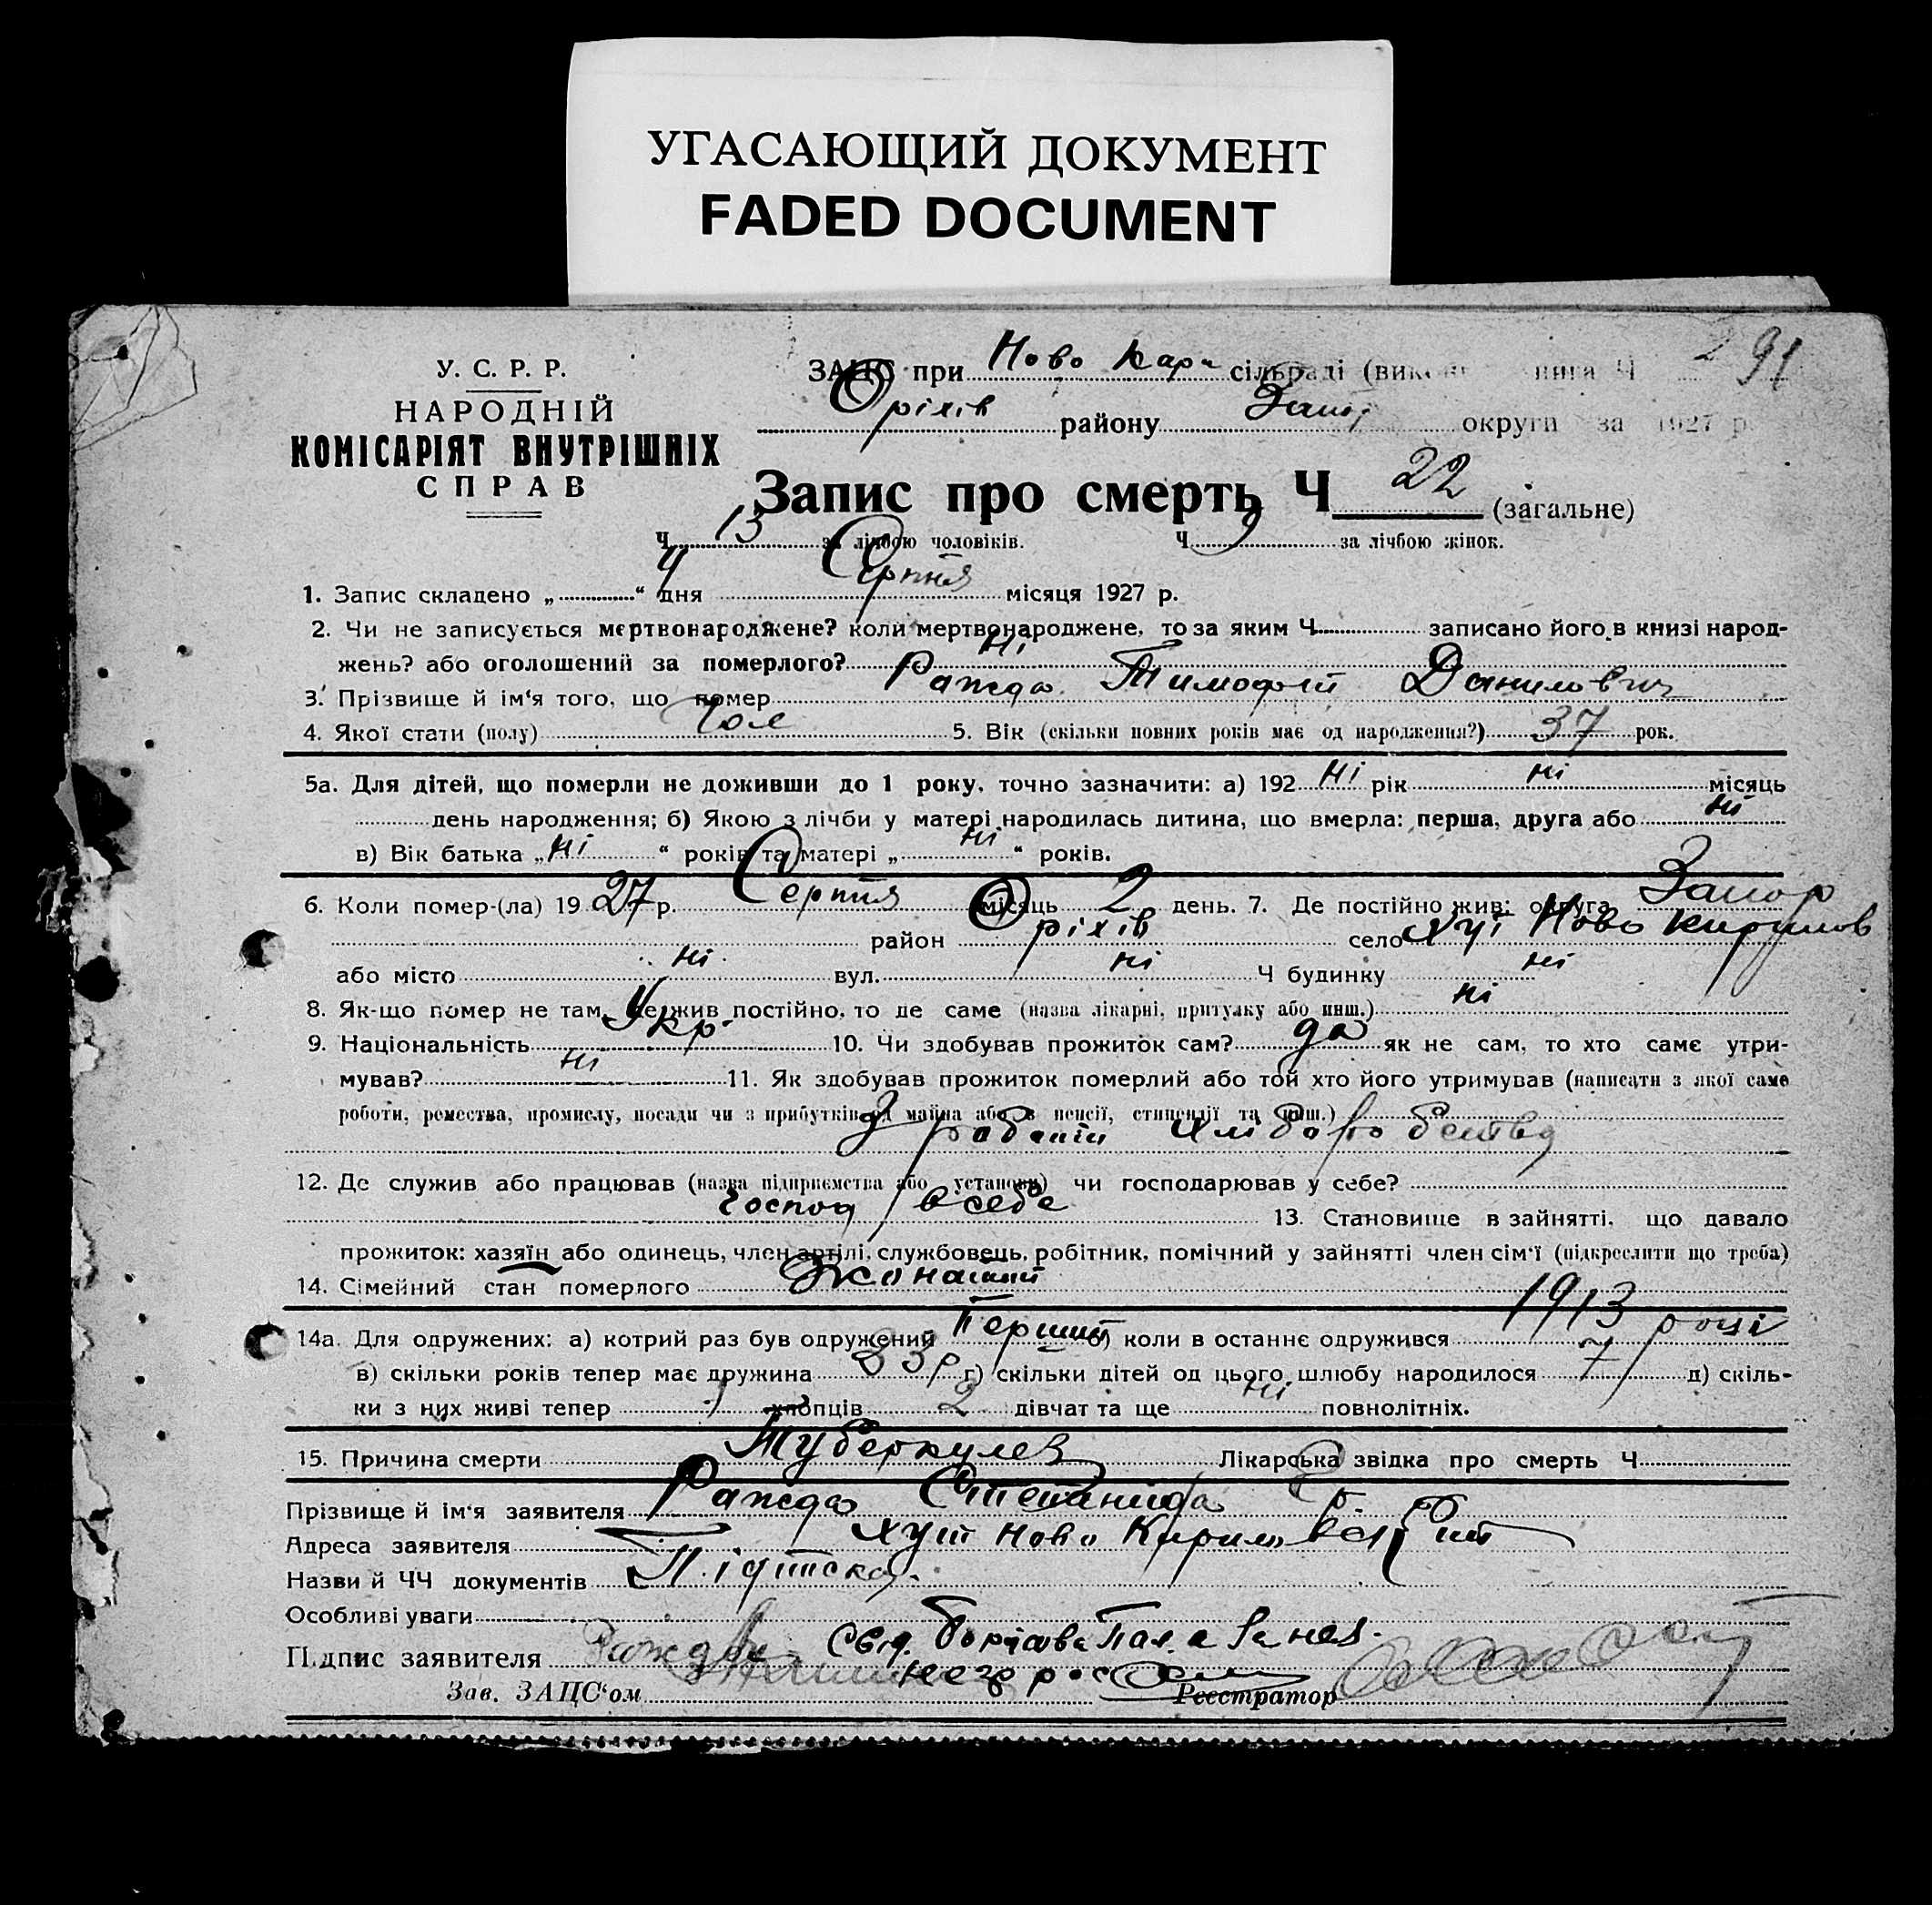 УГАСАЮЩИЙ ДОКУМЕНТ
FADED DOCUMENT
91
У. С. Р. Р.
НАРОДНІЙ
КОМІСАРІЯТ ВНУТРІШНІХ
СПРАВ
ЗАЦС при Ново Кар сільраді
Оріхів району Запор округи за 1927 р.
Запис про смерть Ч 22 (загальне)
Ч 13 за лічбою чоловіків. Ч 9 за лічбою жінок.
1. Запис складено „ “ 4 дня Серпня місяця 1927 р.
2. Чи не записується мертвонароджене? коли мертвонароджене, то за яким Ч. записано його в книзі народ-
жень? або оголошений за померлого? ні
3. Прізвище й ім‘я того, що помер Ражда Тимофій Данилович
4. Якої стати (полу) Чол 5. Вік (скільки повних років має од народження?) 37 рок.
5а. Для дітей, що померли не доживши до 1 року, точно зазначити: а) 192 ні рік ні місяць
день народження; б) Якою з лічби у матері народилась дитина, що вмерла: перша, друга або ні
в) Вік батька „ ні “ років та матері „ ні “ років.
6. Коли помер-(ла) 19 27 р. Серпня місяць 2 день. 7. Де постійно жив: округа Запор
район Оріхів село хут Ново Кирилов
або місто ні вул. ні Ч будинку ні
8. Як-що помер не там, де жив постійно, то де саме (назва лікарні, притулку або инш.) ні
9. Національність Укр 10. Чи здобував прожиток сам? да як не сам, то хто саме утри-
мував? ні 11. Як здобував прожиток померлий або той хто його утримував (написати з якої саме
роботи, ремества, промислу, посади чи з прибутків од майна або з пенсії, стипендії та инш.)
З работи хліборобства
12. Де служив або працював (назва підприємства або установи) чи господарював у себе?
господ в себе 13. Становище в зайнятті, що давало
прожиток: хазяїн або одинець, член артілі, службовець, робітник, помічний у зайнятті член сім‘ї (підкреслити що треба)
14. Сімейний стан померлого Жонатий
14а. Для одружених: а) котрий раз був одружений Перший б) коли в останнє одружився 1913 році
в) скільки років тепер має дружина 33 р г) скільки дітей од цього шлюбу народилося 7 д) скіль-
ки з них живі тепер 1 хлопців 2 дівчат та ще ні повнолітніх.
15. Причина смерти Туберкулез Лікарська звідка про смерть Ч
Прізвище й ім‘я заявителя Ражда Степанида
Адреса заявителя хут Ново Кирилов
Назви й ЧЧ документів
Особливі уваги
Підпис заявителя
Зав. ЗАЦС‘ом Реєстратор